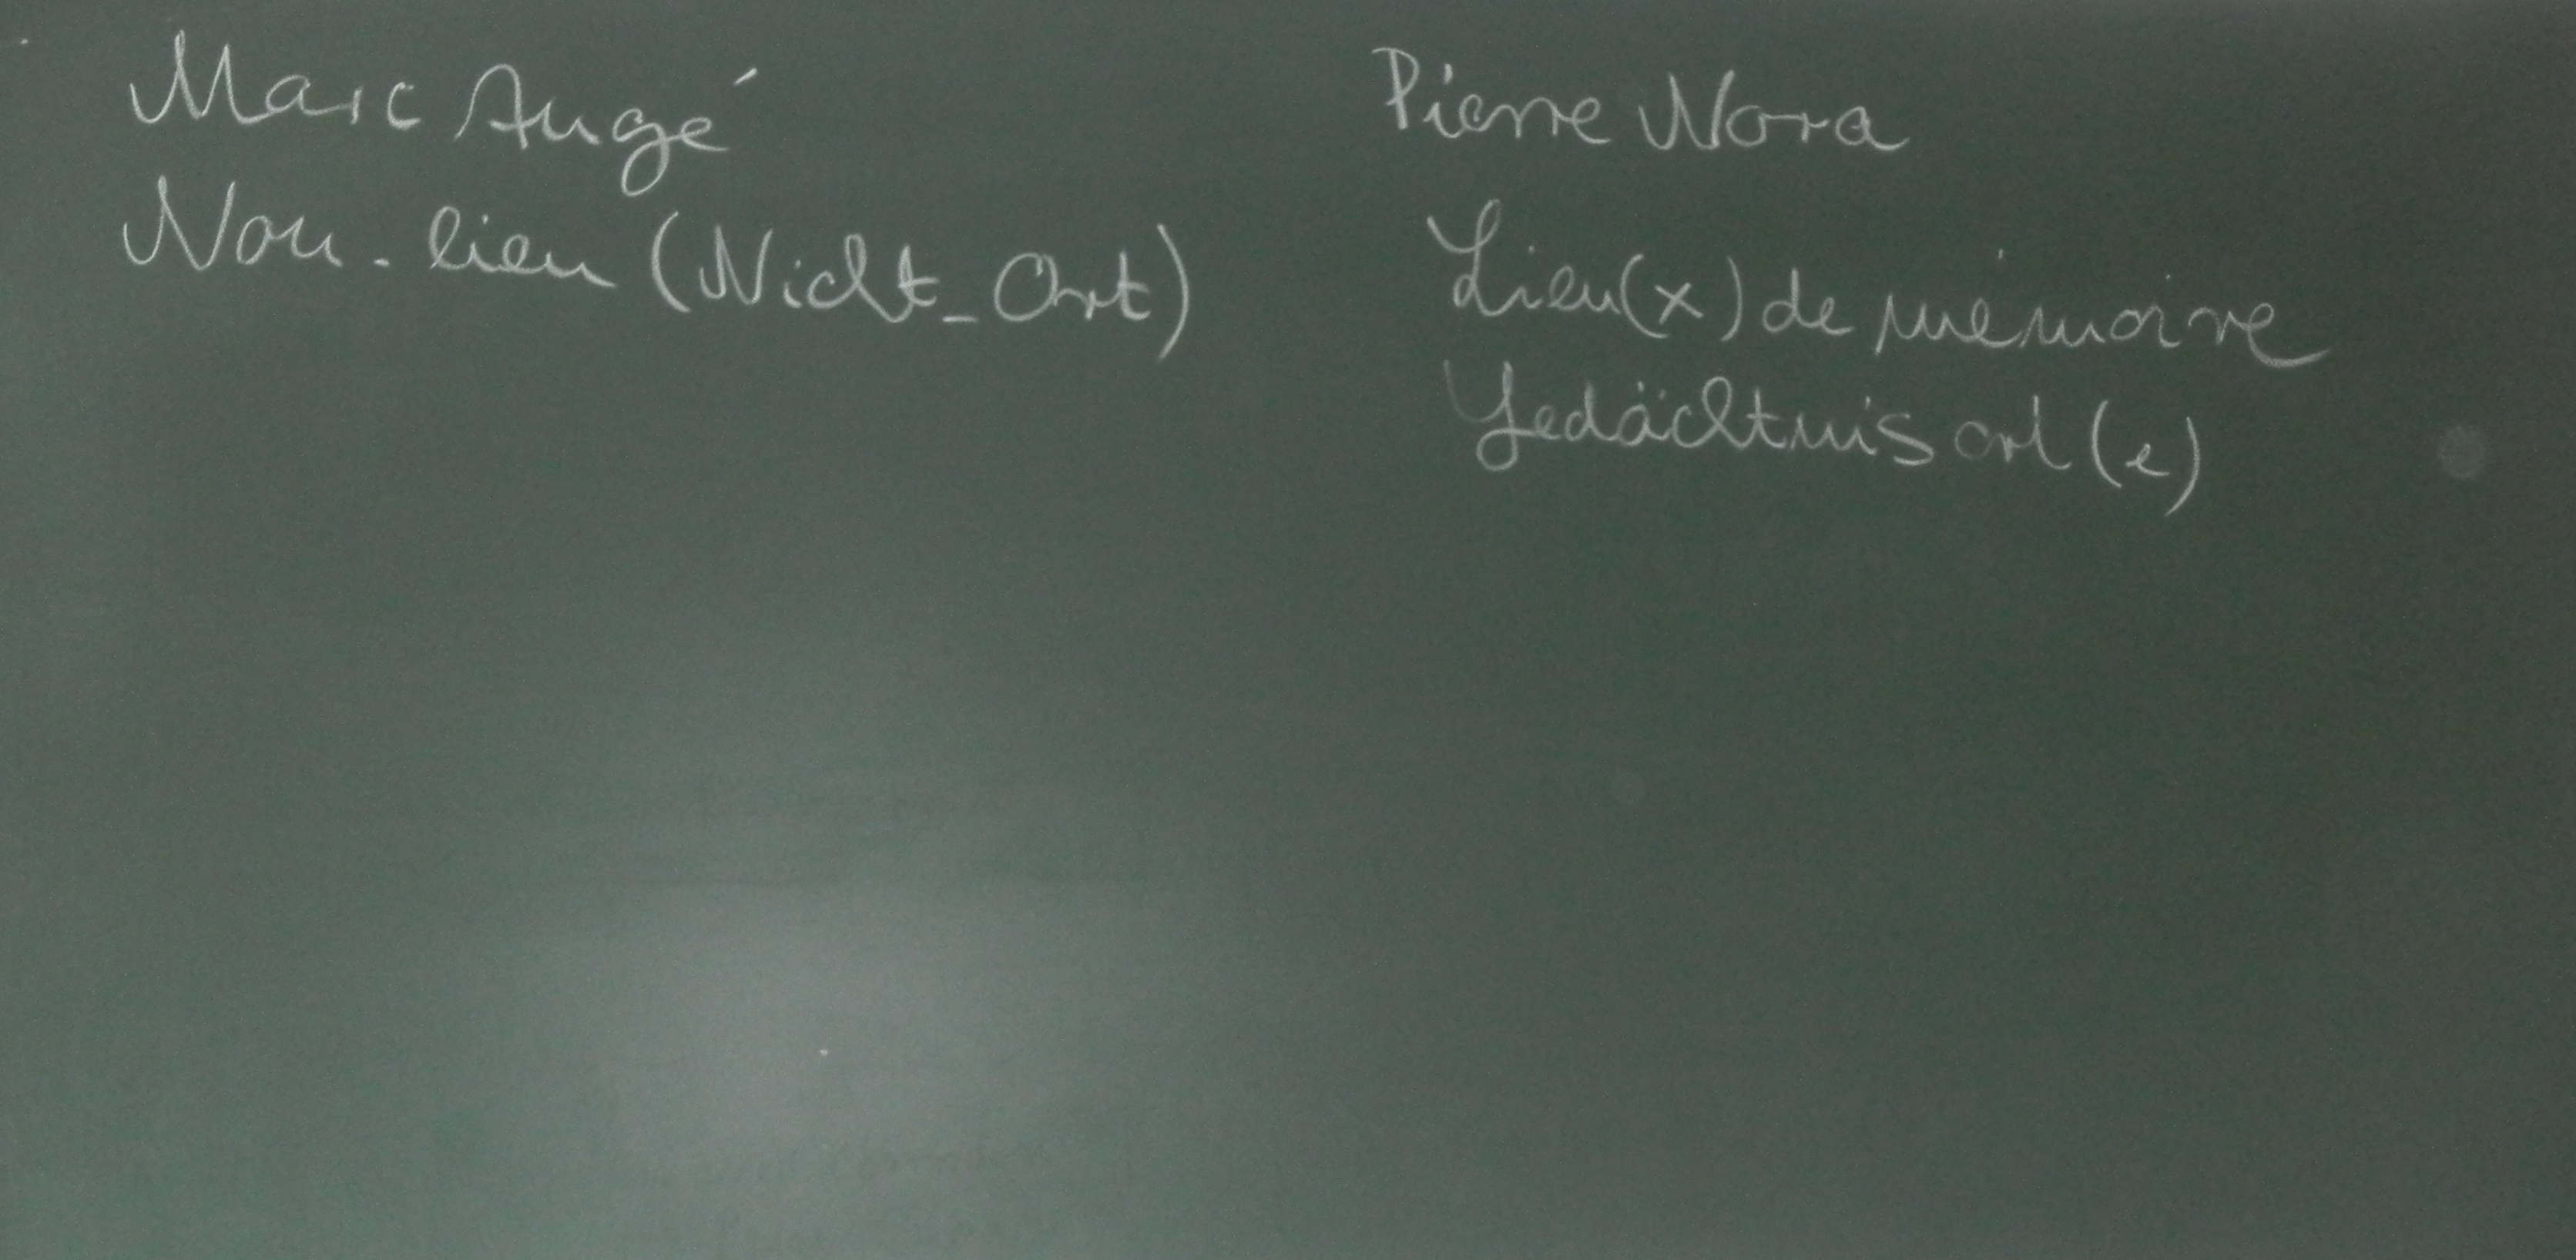 Marc Augé
Non-lieu (Nicht-Ort)
Pierre Nora
Lieu(x) de mémoire
Gedächtnisort(e)